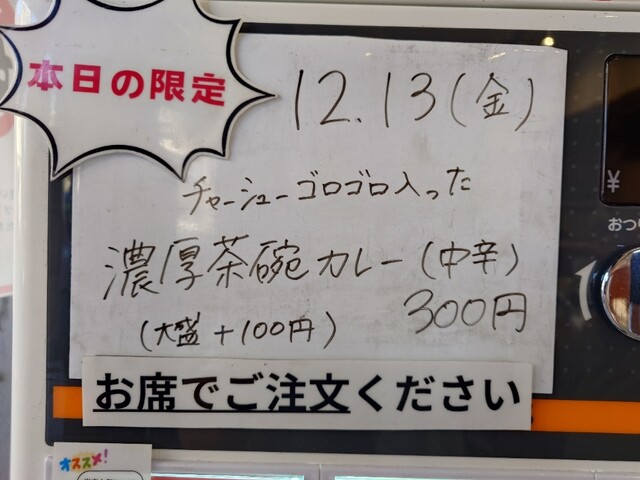 本日の限定
12.13(金)
チャーシューゴロゴロ入った
濃厚茶碗カレー(中辛)
300円
(大盛+100円)
お席でご注文ください
¥
おつり
オススメ!